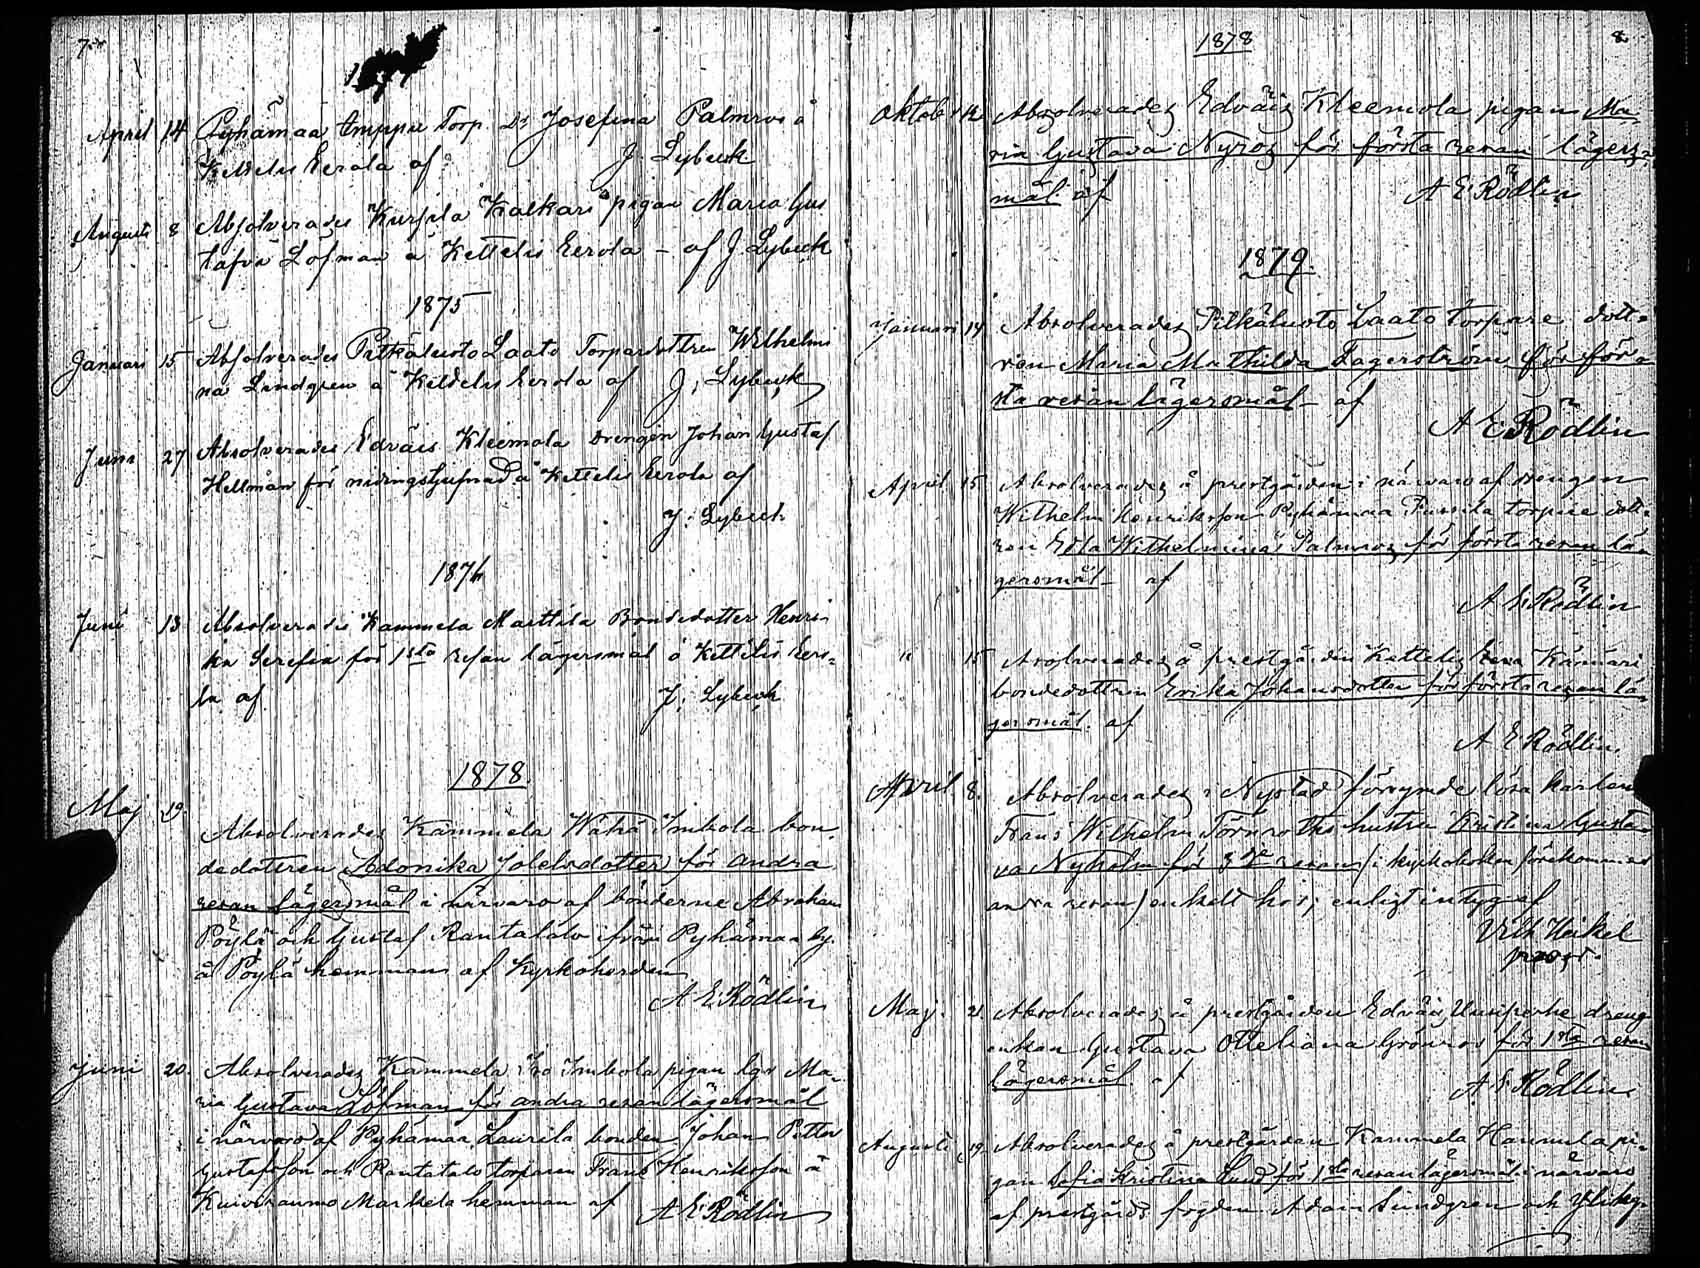 7.
April 14 Pyhämaa Amppu Torp. Dr Josefina Palmros å
Kettelis Eerola af J. Lybeck
Augusti 8 Absolverades Kurjela Kalkari pigan Maria Gus
tafva Löfman å Kettelis Eerola – af J. Lybeck
1875
Januari 15 Absolverades Pitkäluoto Laato Torpardottren Wilhelmi
na Lindgren å Kettelis Eerola af J. Lybeck
Juni 27 Absolverades Edväis Kleemola drengen Johan Gustaf
Hellman för nidingstjufnad å Kettelis Eerola af
J. Lybeck
1876
Juni 13 Absolverades Kammela Marttila Bondedotter Henri
ka Serefia för 1sta resan lägersmål å Kettelis Eero-
la af J. Lybeck
1878.
Maj 19. Absolverades Kammela Wähä Imkola bon
dedottren Adonika Joelsdotter för andra
resan lägersmål i närvaro af bönderne Abraham
Pöylä och Gustaf Rantatalo ifrån Pyhämaa by.
å Pöylä hemman af Kyrkoherden
A E Rödlin
Juni 20. Absolverades Kammela Iso Imkola pigan Ma-
ria Gustava Löfman för andra resan lägersmål
i närvaro af Pyhämaa Laurila bonden Johan Petter
Gustafsson och Rantatalo torparen Frans Henriksson å
Kuivirauma Markela hemman af A E Rödlin
8.
1878
Oktob. 12. Absolverades Edväis Kleemola pigan Ma-
ria Gustava Nyroos för första resan lägers-
mål af A E Rödlin
1879.
Januari 14 Absolverades Pitkäluoto Laato torpare dott-
ren Maria Mathilda Fagerström för för-
sta resan lägersmål – af
A E Rödlin
April 15 Absolverades å prestgården i närvaro af drengen
Wilhelm Henriksson Pyhämaa torpare dott-
ren Edla Wilhelmina Palmroos för första resan lä-
gersmål – af
A E Rödlin
" 15 Absolverades å prestgården Kettelis
bondedottren Erika Johansdotter för första resan lä-
gersmål af
A E Rödlin.
April 8. Absolverades i Nystad försynde lösa karlen
Frans Wilhelm Törnroths hustru Kristina Gusta-
va Nyholm för 3dje resan (i kyrkoboken förekommer
andra resan) enkelt hor; enligt intyg af
Vilh Heikel
prost.
Maj. 21. Absolverades å prestgården Edväis Uusiperhe dreng
enkan Gustava Otteliana Grönroos för 1sta resan
lägersmål af A E Rödlin
Augusti 19. Absolverades å prestgården Kammela Hannula pi-
gan Sofia Kristina Lund för 1sta resan lägersmål i närvaro
af prestgårds fogden Adam Sundgren och